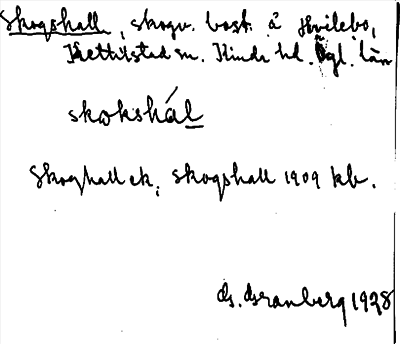 Skogshall, skogv. bost. å Hvilebo,
Kettilstad sn. Kinds hd. Ögl. län
skokshál
Skoghall ek; skogshall 1909 kb.
G. Granberg 1928